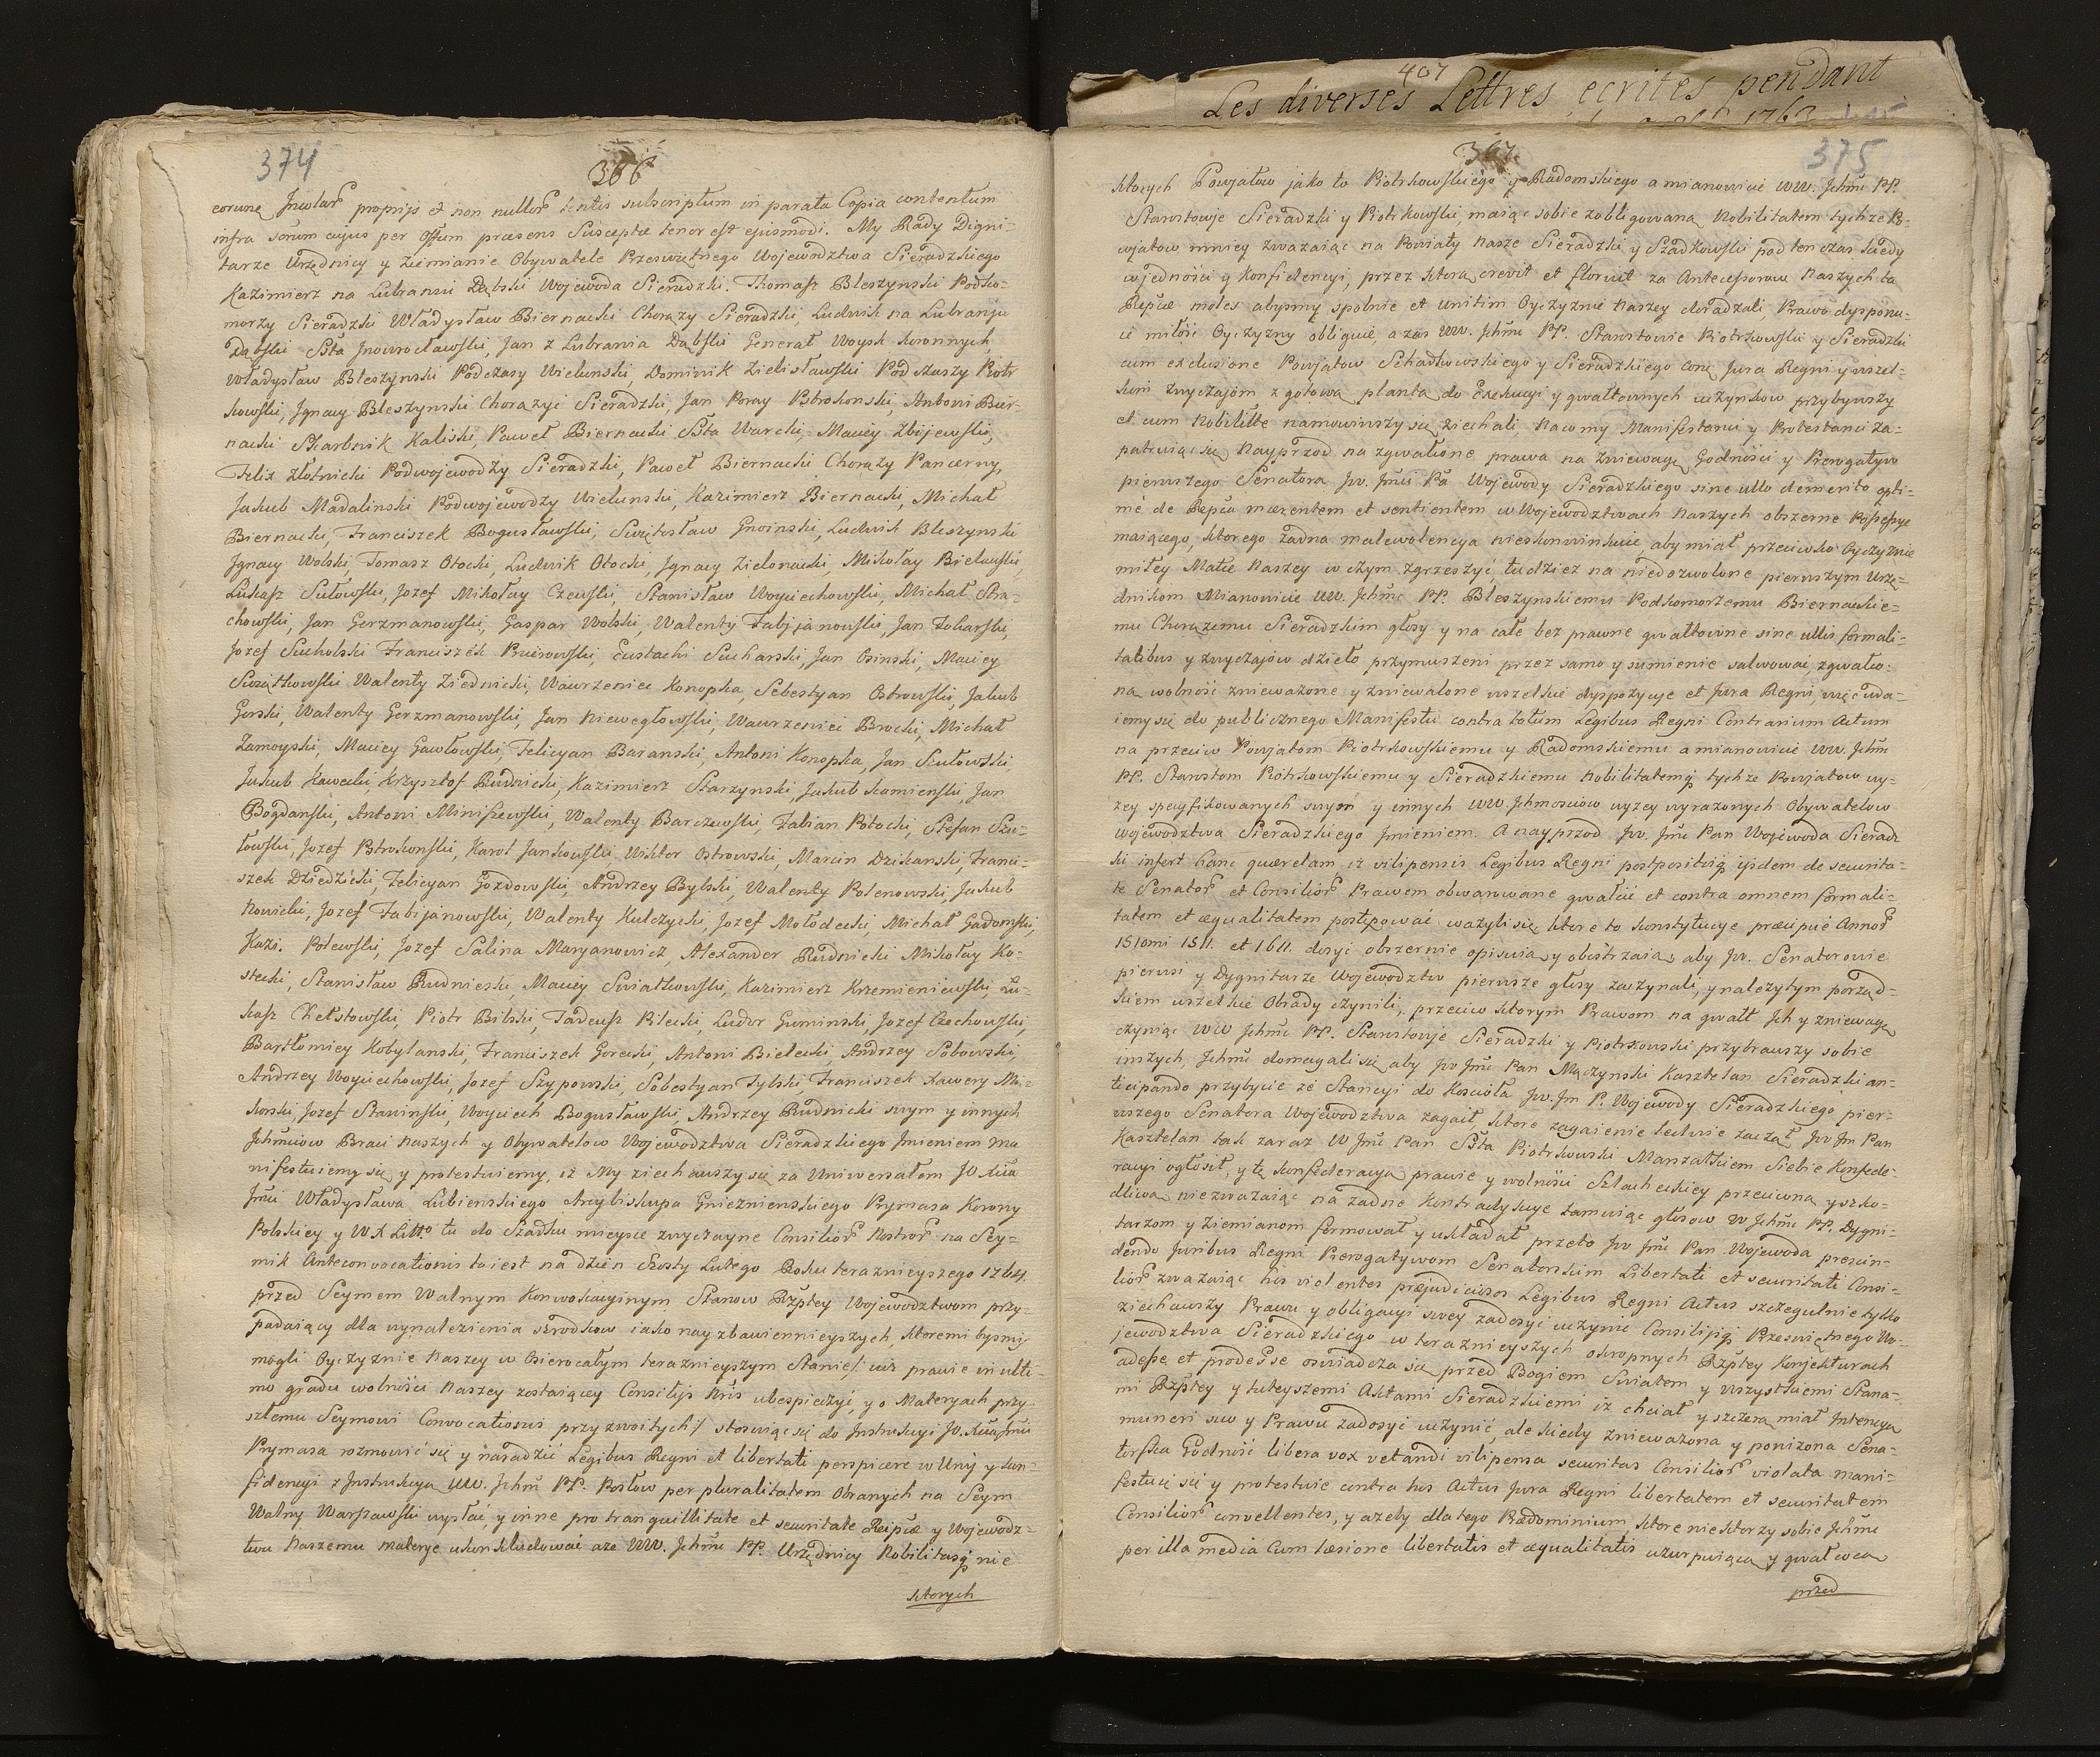 374
366
eorune Incolar̃ proprijs et non nullor̃ sentis subscriptum in parata Copia contentum
infra sorum cujus per Offum præsens Susceptæ tenor est ejusmodi. My Rady Digni-
tarze Urzędnicy y Ziemianie Obywatele Przeswiętnego Wojewodztwa Sieradzkiego
Kazimierz na Lubraniu Dąbski Wojewoda Sieradzki. Thomasz Bleszynski Podko-
morzy Sieradzki Władysław Biernacki Chorązy Sieradzki, Ludwik na Lubraniu
Dąbski Sstta Jnowrocławski, Jan z Lubrania Dąbski Generał Woysk koronnych,
Władysław Bleszynski Podczaszy Wielunski, Dominik Zielisławski Podstaszy Piotr
kowski, Jgnacy Bleszynski Chorązyc Sieradzki, Jan Poray Pstrokonski, Antoni Bier-
nacki Skarbnik Kaliski, Paweł Biernacki Sstta Warcki, Maciey Zbijewski,
Felix Złotnicki Podwojewodzy Sieradzki, Paweł Biernacki Chorązy Pancerny,
Jakub Madalinski Podwojewodzy Wielunski, Kazimierz Biernacki, Michał
Biernacki, Franciszek Bogusławski, Swiętosław Gnoinski, Ludwik Bleszynski
Jgnacy Wolski, Tomasz Otocki, Ludwik Otocki, Jgnacy Zielonacki, Mikołay Bielawski,
Łukasz Sułowski, Jozef Mikołay Czewski, Stanisław Woyciechowski, Michał Stra-
chowski, Jan Gerzmanowski, Gaspar Wolski, Walenty Fabijanowski, Jan Tokarski,
Jozef Sucholski Franciszek Pruszowski, Eustachi Sucharski, Jan Osinski, Maciey
Swiątkowski Walenty Ziednicki, Wawrzeniec Konopka, Sebestyan Ostrowski, Jakub
Gorski, Walenty Gerzmanowski, Jan Niewęgłowski, Wawrzeniec Brocki, Michał
Zamoyski, Maciey Gawłowski, Felicyan Baranski, Antoni Konopka, Jan Szułowski
Jakub Kawecki, Krzysztof Rudnicki, Kazimierz Starzynski, Jakub Kamienski, Jan
Bogdanski, Antoni Miniszewski, Walenty Barczewski, Fabian Potocki, Stefan Szu-
łowski, Jozef Pstrokonski, Karol Jankowski, Wiktor Ostrowski, Marcin Dzikanski, Franci-
szek Dziedzicki, Felicyan Gozdowski, Andrzey Bylski, Walenty Polenowski, Jakub
Nowicki, Jozef Fabijanowski, Walenty Kulczycki, Jozef Mołodecki, Michał Gadomski,
Kazi. Polewski, Jozef Salina Maryanowicz, Alexander Rudnicki Mikołay Ko-
stecki, Stanisław Rudnicski, Maciey Swiatkowski, Kazimierz Krzemieniewski, Łu-
kasz Chełstowski, Piotr Bilski, Tadeusz Rilecki, Ludor Guminski, Jozef Czechowski,
Bartłomiey Kobylanski, Franciszek Gorecki, Antoni Bielecki Andrzey Sobowski,
Andrzey Woyciechowski, Jozef Szypowski, Sobestyan Tylski Franciszek Xawery Mi-
korski, Jozef Stawinski, Woyciech Bogusławski Andrzey Rudnicki swym y innych
Jchmciow Braci Naszych y Obywatelow Wojewodztwa Sieradzkiego Jmieniem ma
nifestuiemy się y protestuiemy, iż My ziechawszy się za Uniwersałem JO. Xcia
Jmci Władysława Łubienskiego Arcybiskupa Gnieznienskiego Prymasa Korony
Polskiey y W X Litto tu do Szadku mieysce zwyczayne Consilior̃ Nostror̃ na Sey=
mik Anteconvocationis to iest na dzien Szosty Lutego Roku teraznieyszego 1764.
przed Seymem Walnym Konwokacyinym Stanow Rzptey Wojewodztwom przy-
padaiący dla wynalezienia srodkow iako nayzbawiennieyszych, ktoremi bysmy
mogli Oyczyznie Naszey w Osierocałym teraznieyszym Stanie /: iuż prawie in ulti-
mo gradu wolności Naszey zostaiącey Consilijs Nris ubespieczyć, y o Materyach przy-
szłemu Seymowi Convocationis przyzwoitych :/ stosuiąc się do Jnstrukcyi JO. Xcia Jmci
Prymasa rozmowić się y naradzić Legibus Regni et libertati perspicere w Unij y kon-
fidencyi z Jnstrukcya WW. Jchm PP. Posłow per pluralitatem Obranych na Seym
Walny Warszawski wysłać, y inne pro tranquillitate et securitate Reipcæ y Wojewodz-
twu Naszemu materye ukonkludować aże WW. Jchmc PP. Urzędnicy Nobilitasq nie
ktorych
407
Les diverses Lettres ecrites pendant
1763
367.
375
ktorych Powjatow jako to Piotrkowskiego y Radomskiego a mianowicie WW. Jchmc PP.
Starostowje Sieradzki y Piotrkowski, maiąc sobie zobligowaną Nobilitatem tychze Po-
wjatow mniey zwazaiąc na Powiaty Nasze Sieradzki y Szadkowski pod ten czas kiedy
w jedności y Konfidencyi, przez ktora crevit et floruit za Antecessorow Naszych ta
Reipcæ moles abysmy społnie et unitim Oyczyznie Naszey doradzali, Prawo dysponu-
ie miłość Oyczyzny obliguie, a zas WW. Jchmc PP. Starostowie Piotrkowski y Sieradzki
cum exclusione Powjatow Schadkowskiego y Sieradzkiego conẽ Jura Regni y wszel-
kim zwyczajom z gotową plantą do Exekucyi y gwałtownych uczynkow przybywszy
et cum Nobilitte namowiwszy się ziechali, na co my Manifestanci y Protestanci za-
patruiąc się Nayprzod na zgwałcone prawa na zniewagę Godności y Prerogatyw
pierwszego Senatora Jw. Jmci Pa Wojewody Sieradzkiego sine ullo demerito opti-
mè de Repca merentem et sentientem w Wojewodztwach Naszych obszerne Possessye
maiącego, ktorego żadna malewolencya nieskonwinkuie, aby miał przeciwko Oyczyznie
miłey Matce Naszey w czym zgrzeszyć, tudziez na niedozwolone pierwszym Urzę-
dnikom Mianowicie WW. Jchmc PP. Bleszynskiemu Podkomorzemu Biernackie-
mu Chorązemu Sieradzkim głosy y na całe bez prawne gwałtowne sine ullis formali-
talibus y zwyczajow dzieło przymuszeni przez samo y sumienie salwować, zgwałco:
na wolność zniewazone y zniewalone wszelkie dyspozycye et Jura Regni, więc uda-
iemy się do publicznego Manifestu contra totum Legibus Regni Contrarium Actum
na przeciw Powjatom Piotrkowskiemu y Radomskiemu a mianowicie WW. Jchmc
PP. Starostom Piotrkowskiemu y Sieradzkiemu Nobilitatemq tychze Powjatow wy-
zey specyfikowanych swym y innych WW. Jchmosciow wyzey wyrazonych Obywatelow
Wojewodztwa Sieradzkiego Jmieniem. A nayprzod Jw. Jmc Pan Wojewoda Sieradz
ki infert hanc querelam iż vilipensis Legibus Regni postpositisq ijsdem de securita-
te Senator̃ et Consilior̃ Prawem obwarowane gwałcić et contra omnem formali-
tatem et æqualitatem postępować ważyli się, ktore to konstytucye præcipuè Annor̃
1510mi 1511. et 1611. dosyć obszernie opisuią y obostrzaią, aby Jw. Senatorowie
pierwsi y Dygnitarze Wojewodztw pierwsze głosy zaczynali, y nalezytym porząd-
kiem wszelkie Obrady czynili, przeciw ktorym Prawom na gwałt Jch y zniewagę
czyniąc WW Jchmc PP. Starostowje Sieradzki y Piotrkowski przybrawszy sobie
inszych, Jchmc domagali się, aby Jw Jmc Pan Mączynski Kasztelan Sieradzki an-
ticipando przybycie ze Stancyi do Koscioła Jw. Jm P. Wojewody Sieradzkiego pier-
wszego Senatora Wojewodztwa zagaił, ktore zagaienie ledwie zaczął Jw Jm Pan
Kasztelan tak zaraz W Jmc Pan Sstta Piotrkowski Marszałkiem Siebie Konfede-
racyi ogłosił, y tę konfederacyą prawie y wolności Szlacheckiey przeciwną y szko-
dliwą niezwazaiąc na żadne Kontradykcye tamuiąc głosow W Jchmc PP. Dygni-
tarzom y Ziemianom formował y układał przeto Jw Jmc Pan Wojewoda prescin-
dendo Juribus Regni Prerogatywom Senatorskim Libertati et securitati Consi-
lior̃ zwazaiąc hos violentos præjudiciosos Legibus Regni Actus szczegulnie tylko
ziechawszy Prawu y obligacyi swey zadosyć uczynić Consilijsq Przeswiętnego Wo-
jewodztwa Sieradzkiego w teraznieyszych okropnych Rzptey Konjekturach
adesse et prodesse oswiadcza się przed Bogiem Swiatem y wszystkiemi Stana-
mi Rzptey y tuteyszemi Aktami Sieradzkiemi iż chciał y szczerą miał Jntencyą
muneri suo y Prawu zadosyć uczynić, ale kiedy zniewazona y ponizona Sena-
torska Godność libera vox vetandi vilipensa securitas Consilior̃ violata mani-
festuie się y protestuie contra hos Actus Jura Regni libertatem et securitatem
Consilior̃ convellentes, y azeby dla tego Prædominium, ktore niektorzy sobie Jchmc
per illa media Cum læsione libertatis et æqualitatis uzurpuiąca y gwałcąca
przed